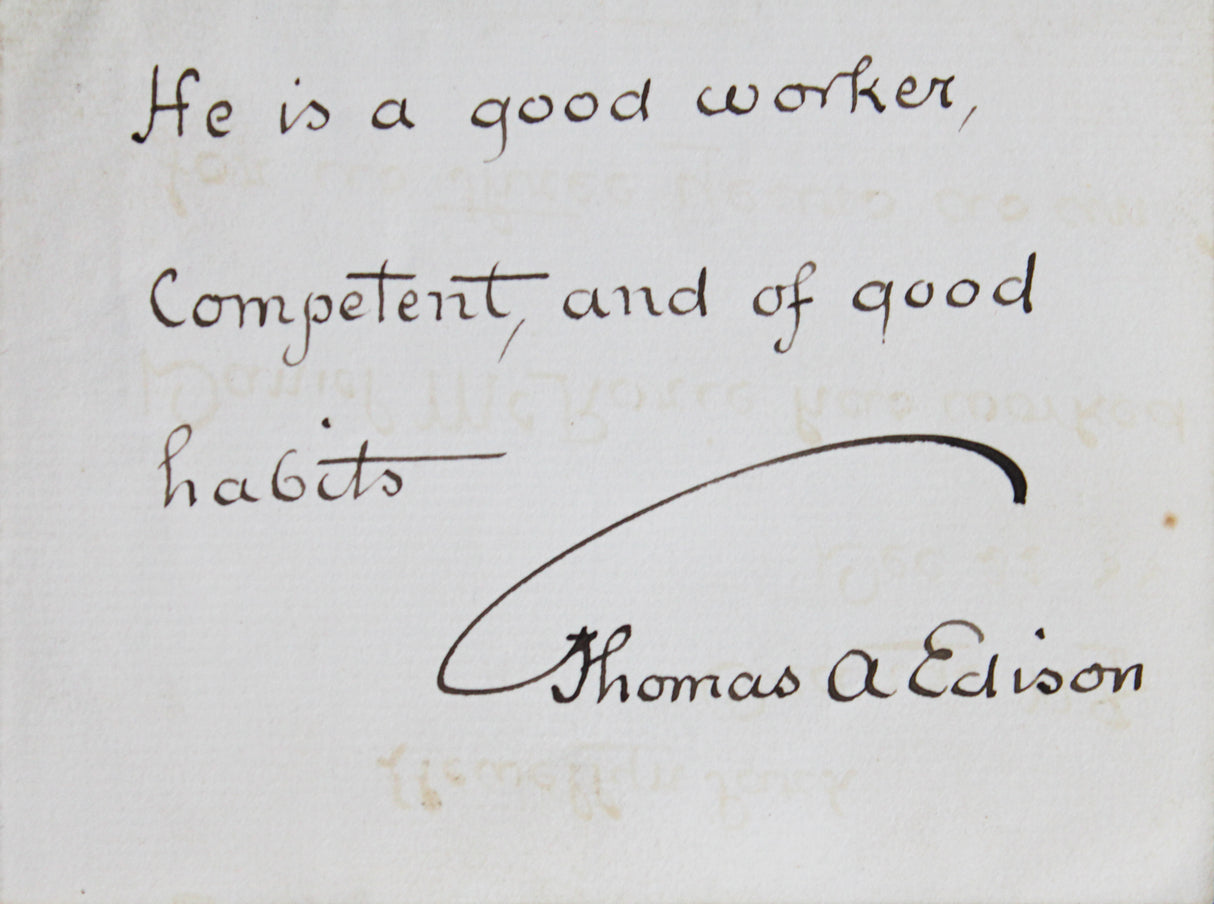 He is a good worker,
Competent, and of good
habits
Thomas A Edison